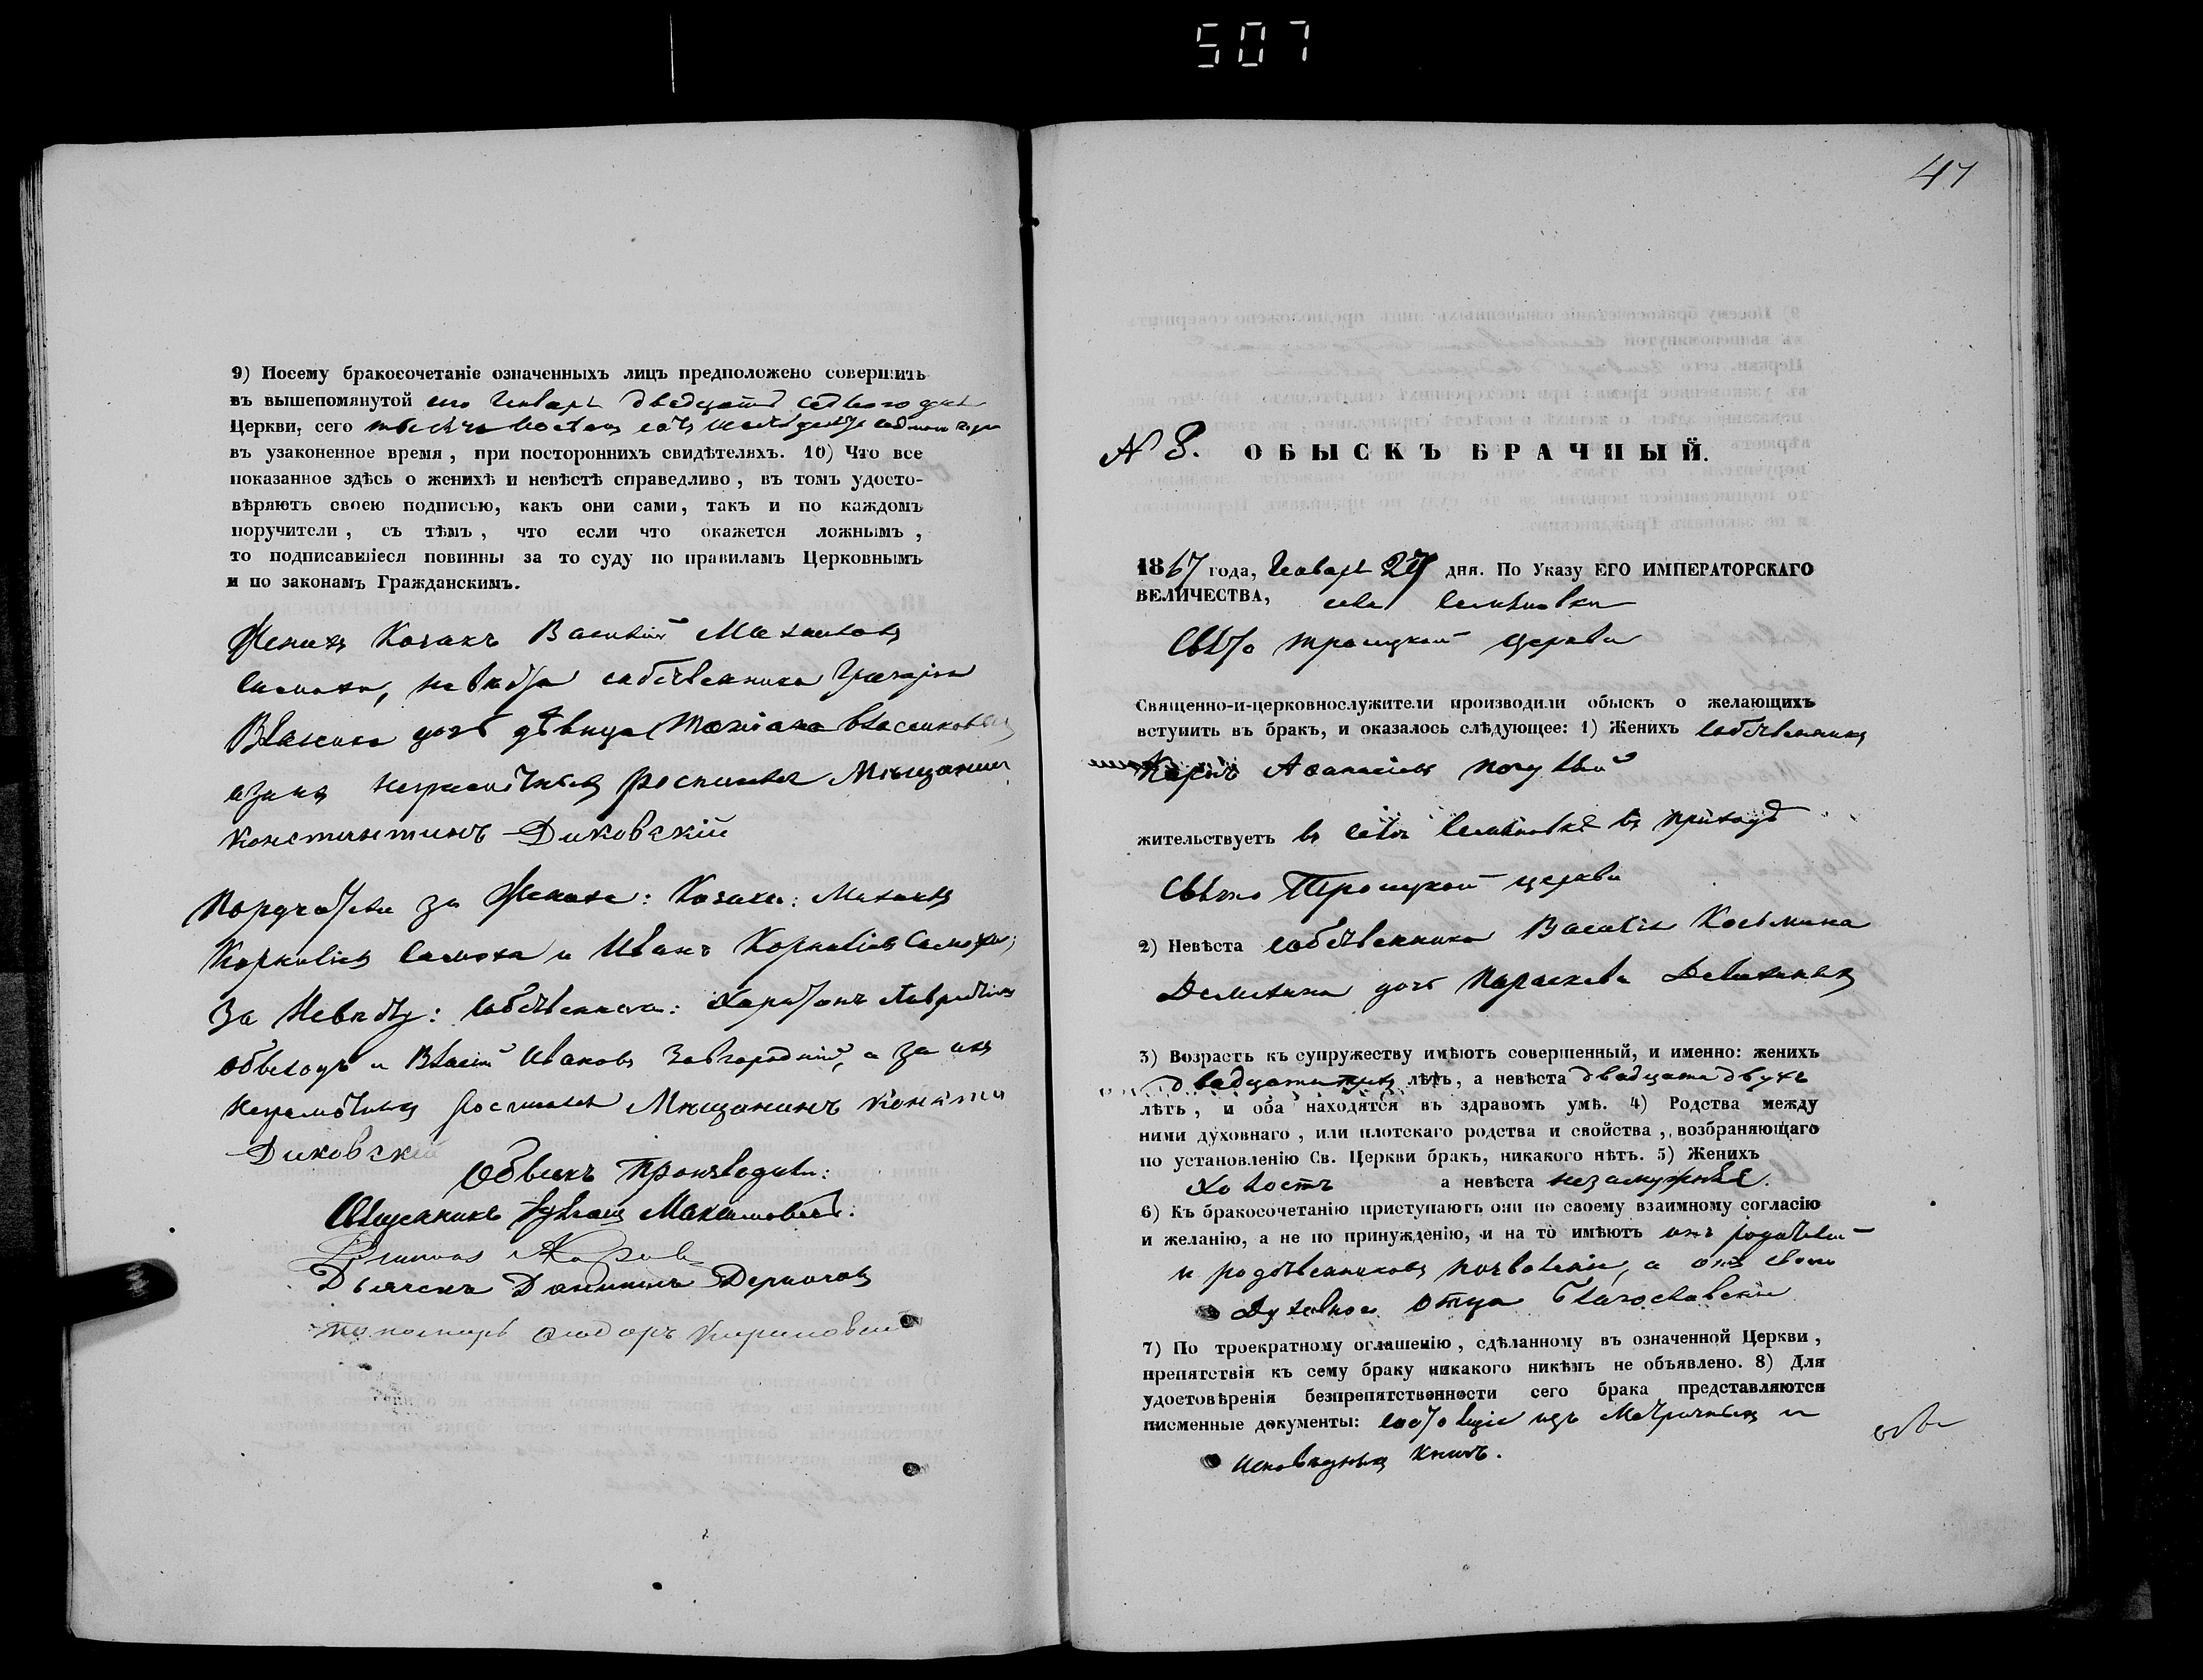 507
9) Посему бракосочетаніе означенныхъ лицъ предположено совершить
въ вышепомянутой сего Генваря двадцать седьмого дня
Церкви, сего тысяча восемь сотъ шестьдесятъ седмого года
въ узаконенное время, при постороннихъ свидѣтеляхъ. 10) Что все
показанное здѣсь о женихѣ и невѣстѣ справедливо, въ томъ удосто-
вѣряютъ своею подписью, какъ они сами, такъ и по каждомъ
поручители, съ тѣмъ, что если что окажется ложнымъ,
то подписавшіеся повинны за то суду по правиламъ Церковнымъ
и по законамъ Гражданскимъ.
Женихъ Козакъ Василій Михаиловъ
Самоха, невѣста собственника Григорія
Власенка дочь дѣвица Татіана Власенкова
а за нихъ неграмотныхъ росписался Мѣщанинъ
Константинъ Диковскій
Поручители за Жениха: Козаки: Михаилъ
Корнилієвъ Самоха и Иванъ Корнилієвъ Самоха;
За Невѣсту: собственники: Харитонъ
и Власій Ивановъ Завгородній, а за ихъ
неграмотныхъ росписался Мѣщанинъ Конста
Диковскій
Обыскъ производили:
Священникъ Максимовичъ.
Дьячекъ Даніилъ Деркачовъ
Пономарь Ѳеодоръ
47
N 8. ОБЫСКЪ БРАЧНЫЙ.
1867 года, Генваря 27 дня. По Указу ЕГО ИМПЕРАТОРСКАГО
ВЕЛИЧЕСТВА, села Семеновки
Свято Троицкой церкви
Священно-и-церковнослужители производили обыскъ о желающихъ
вступить въ бракъ, и оказалось слѣдующее: 1) Женихъ собственникъ
Карпъ Аѳанасіевъ
жительствуетъ въ селѣ Семеновкѣ въ приходѣ
Свято Троицкой церкви
2) Невѣста собственника Василія Косьмина
дочь Параскева
3) Возрастъ къ супружеству имѣютъ совершенный, и именно: женихъ
двадцати трехъ лѣтъ, а невѣста двадцати двухъ
лѣтъ, и оба находятся въ здравомъ умѣ. 4) Родства между
ними духовнаго, или плотскаго родства и свойства, возбраняющаго
по установленію Св. Церкви бракъ, никакого нѣтъ. 5) Женихъ
холостъ а невѣста незамужняя.
6) Къ бракосочетанію приступаютъ они по своему взаимному согласію
и желанію, а не по принужденію, и на то имѣютъ отъ родителей
и родственниковъ позволеніе, а отъ своего
Духовного Отца благословеніе
7) По троекратному оглашенію, сдѣланному въ означенной Церкви,
препятствія къ сему браку никакого никѣмъ не объявлено. 8) Для
удостовѣренія безпрепятственности сего брака представляются
писменные документы: изъ Метричныхъ и
исповѣдныхъ книгъ.